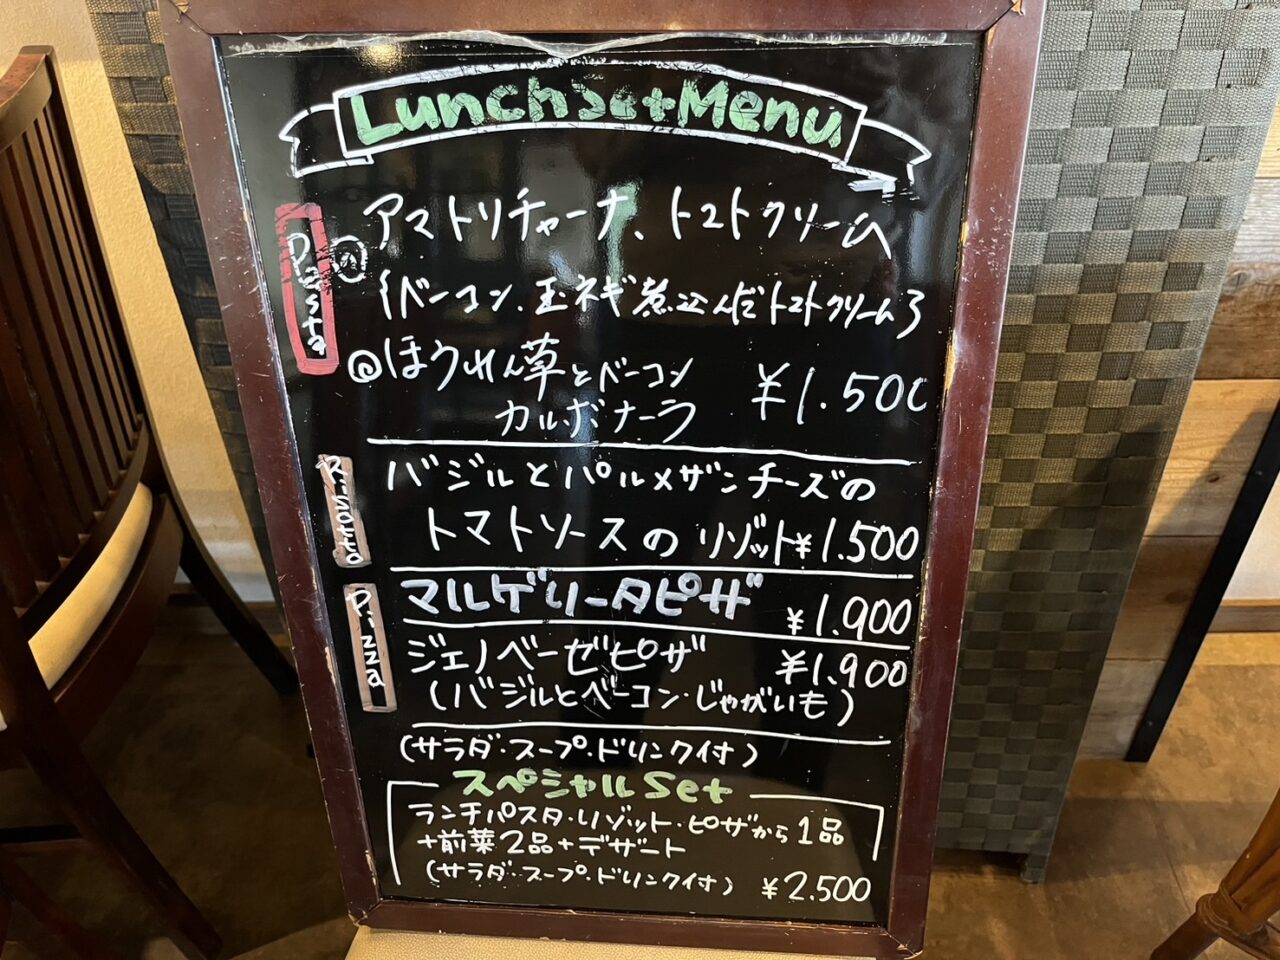 Lunch Set Menu
Pasta
アマトリチャーナ、トマトクリーム
(ベーコン、玉ネギ煮込んだトマトクリーム)
@ほうれん草とベーコン
カルボナーラ ¥1.500
Risotto
バジルとパルメザンチーズの
トマトソースのリゾット ¥1.500
Pizza
マルゲリータピザ ¥1.900
ジェノベーゼピザ ¥1.900
(バジルとベーコン・じゃがいも)
(サラダ・スープ・ドリンク付)
スペシャルSet
ランチパスタ・リゾット・ピザから1品
+前菜2品+デザート
(サラダ・スープ・ドリンク付) ¥2.500